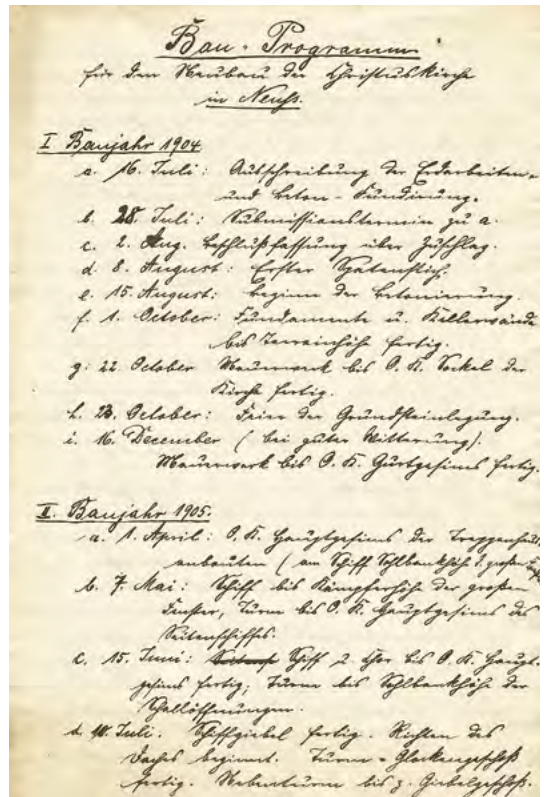 Bau-Programm
für den Neubau der Christuskirche
in Neuss.
I Baujahr 1904.
a. 16. Juli: Ausschreibung der Erdarbeiten
und Beton-Fundirung.
b. 28. Juli: Submissionstermin zu a.
c. 2. Aug. Beschlußfassung über Zuschlag.
d. 8. August: Erster Spatenstich.
e. 15. August: Beginn der Betonierung.
f. 1. October: Fundamente u. Kellerwände
bis Terrainhöhe fertig.
g. 22. October Mauerwerk bis O. K. Sockel der
Kirche fertig.
h. 23. October: Feier der Grundsteinlegung.
i. 16. December (bei guter Witterung).
Mauerwerk bis O. K. Gurtgesims fertig.
II. Baujahr 1905.
a. 1. April: O. K. Hauptgesims der Treppenhaus-
anbauten (am Schiff Sohlbankhöhe d. großen
b. 7. Mai: Schiff bis Kämpferhöhe der großen
Fenster, Turm bis O. K. Hauptgesims des
Seitenschiffes.
c. 15. Juni: Schiff u. Chor bis O. K. Haupt-
gesims fertig; Turm bis Sohlbankhöhe der
Schallöffnungen.
d. 10. Juli. Schiffgiebel fertig. Richten des
Daches beginnt. Turm-Glockengeschoß
fertig. Nebenturm bis z. Giebelgeschoß.